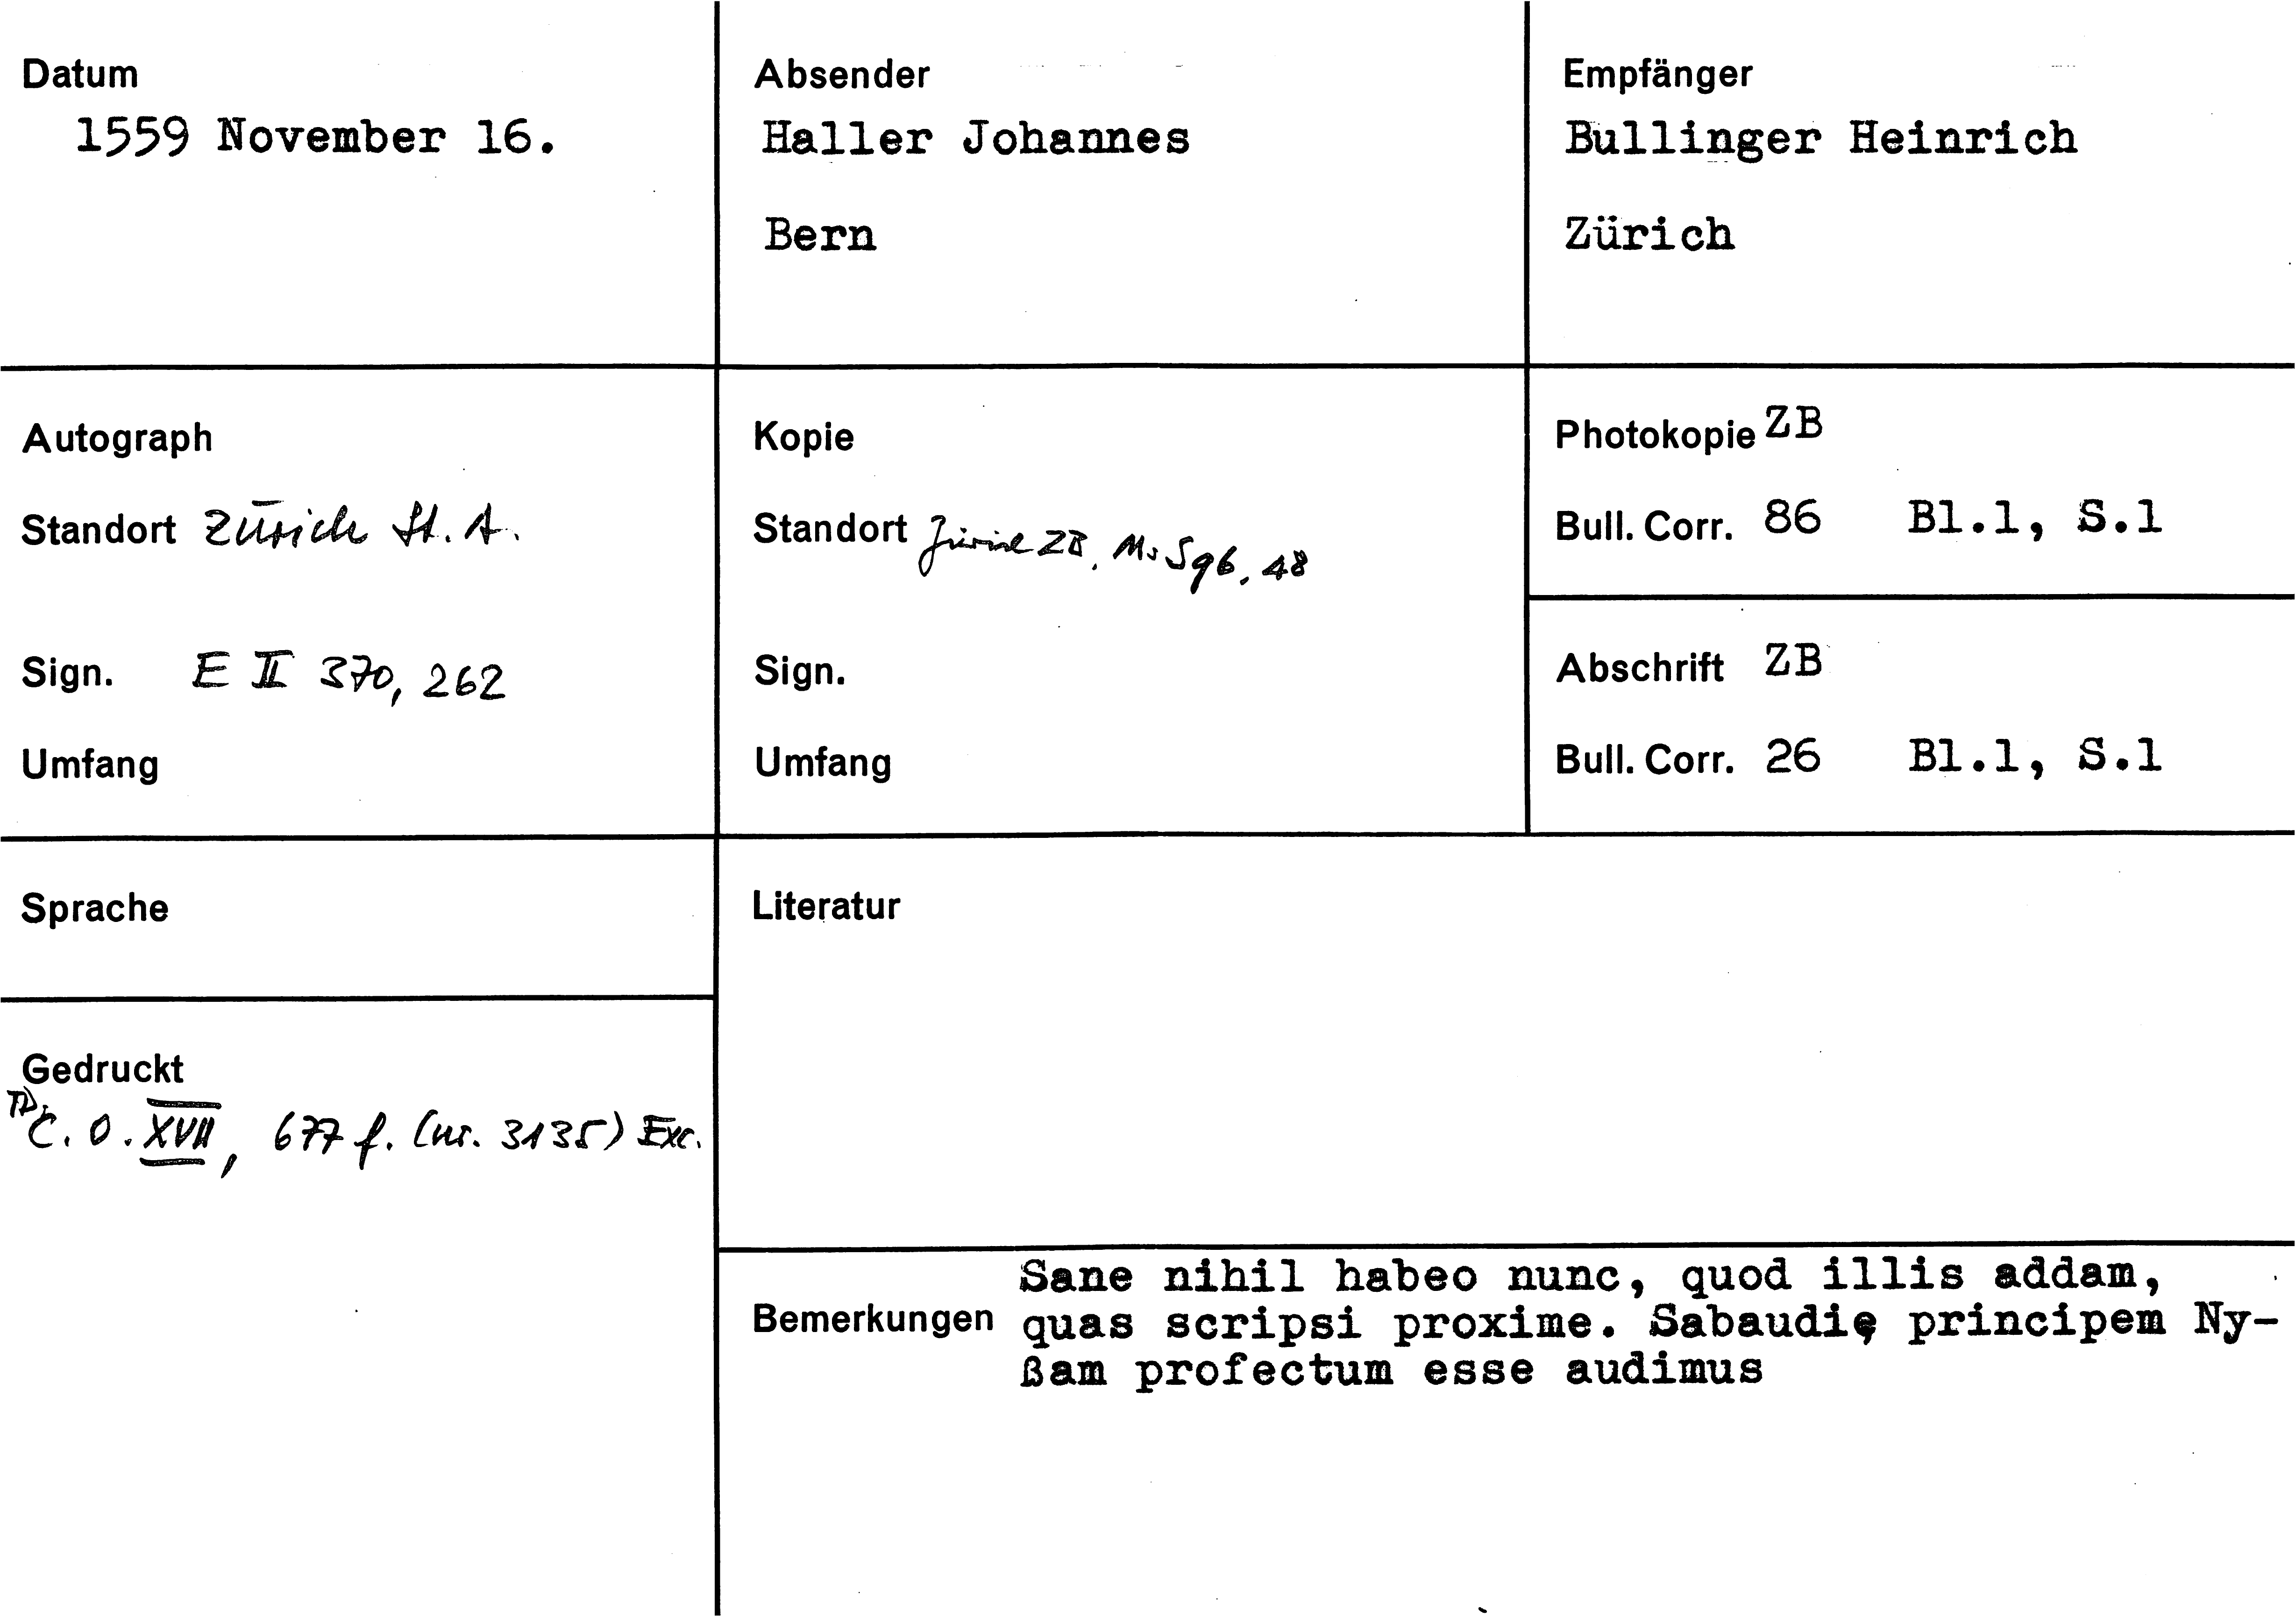 Datum
1559 November 16.
Absender
Haller Johannes
Bern
Empfänger
Bullinger Heinrich
Zürich
Autograph
Standort Zürich St. A.
Sign. E II 370, 262
Umfang
Kopie
Standort Zürich ZB, Ms S 96, 48
Sign.
Umfang
Photokopie ZB
Bull. Corr. 86 Bl.1, S.1
Abschrift ZB
Bull. Corr. 26 Bl.1, S.1
Sprache
Literatur
Gedruckt
TD.
C. O. XVII, 677 f. (nr. 3135) Exc.
Bemerkungen
Sane nihil habeo nunc, quod illis addam,
quas scripsi proxime. Sabaudię principem Ny-
ßam profectum esse audimus